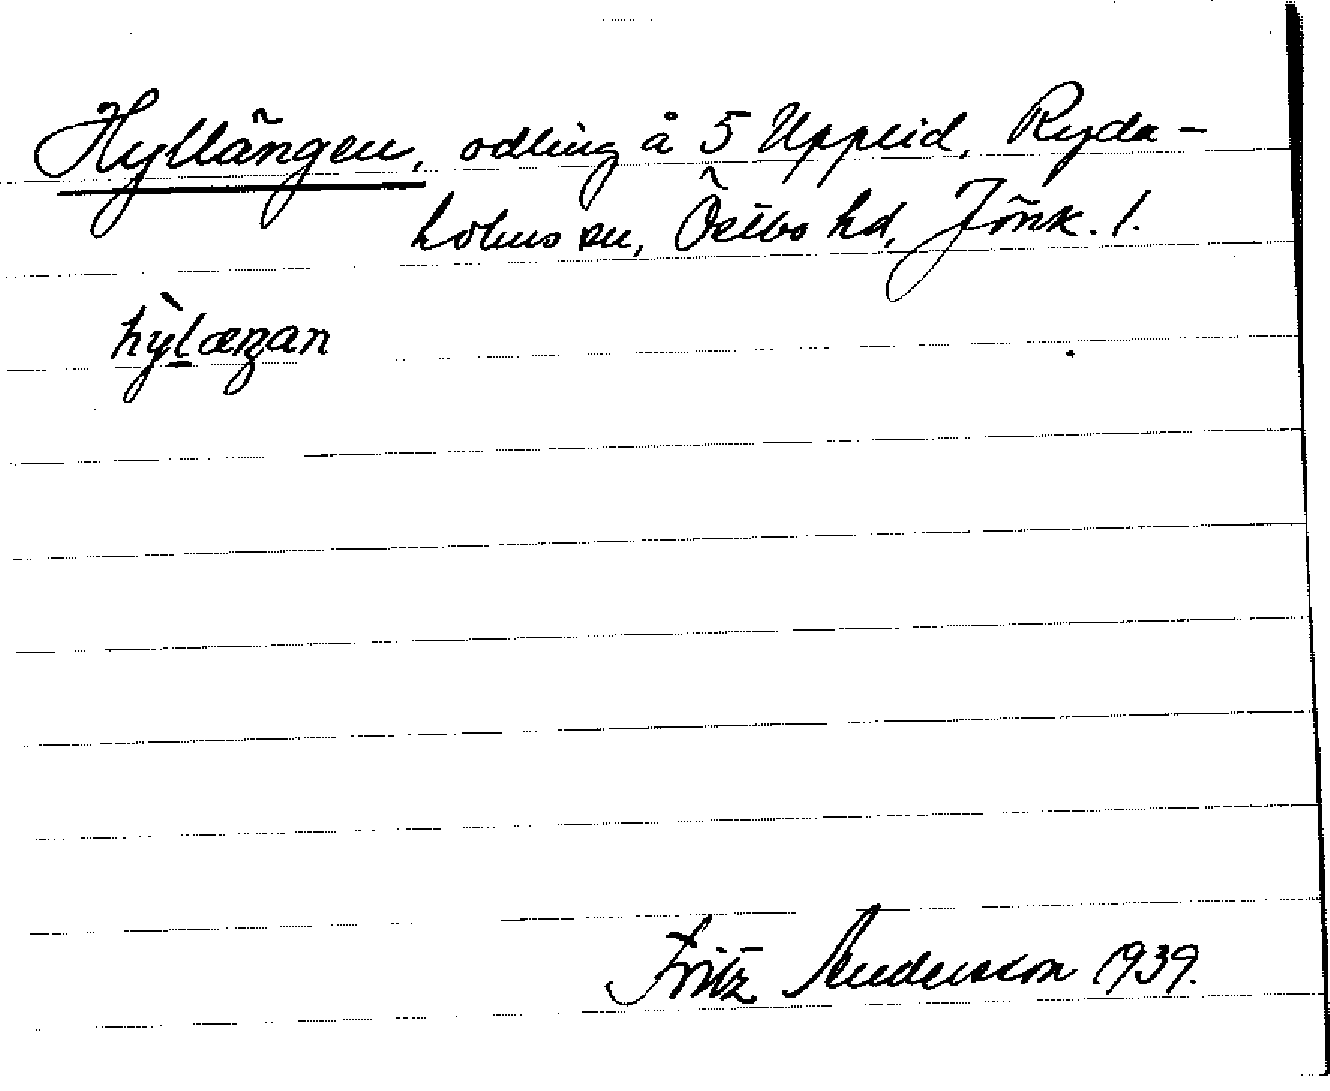 Hyllängen, odling å 5 Upplid, Ryda-
holms sn, Östbo hd, Jönk. l.
hỳlæŋan
Fritz Andersson 1939.